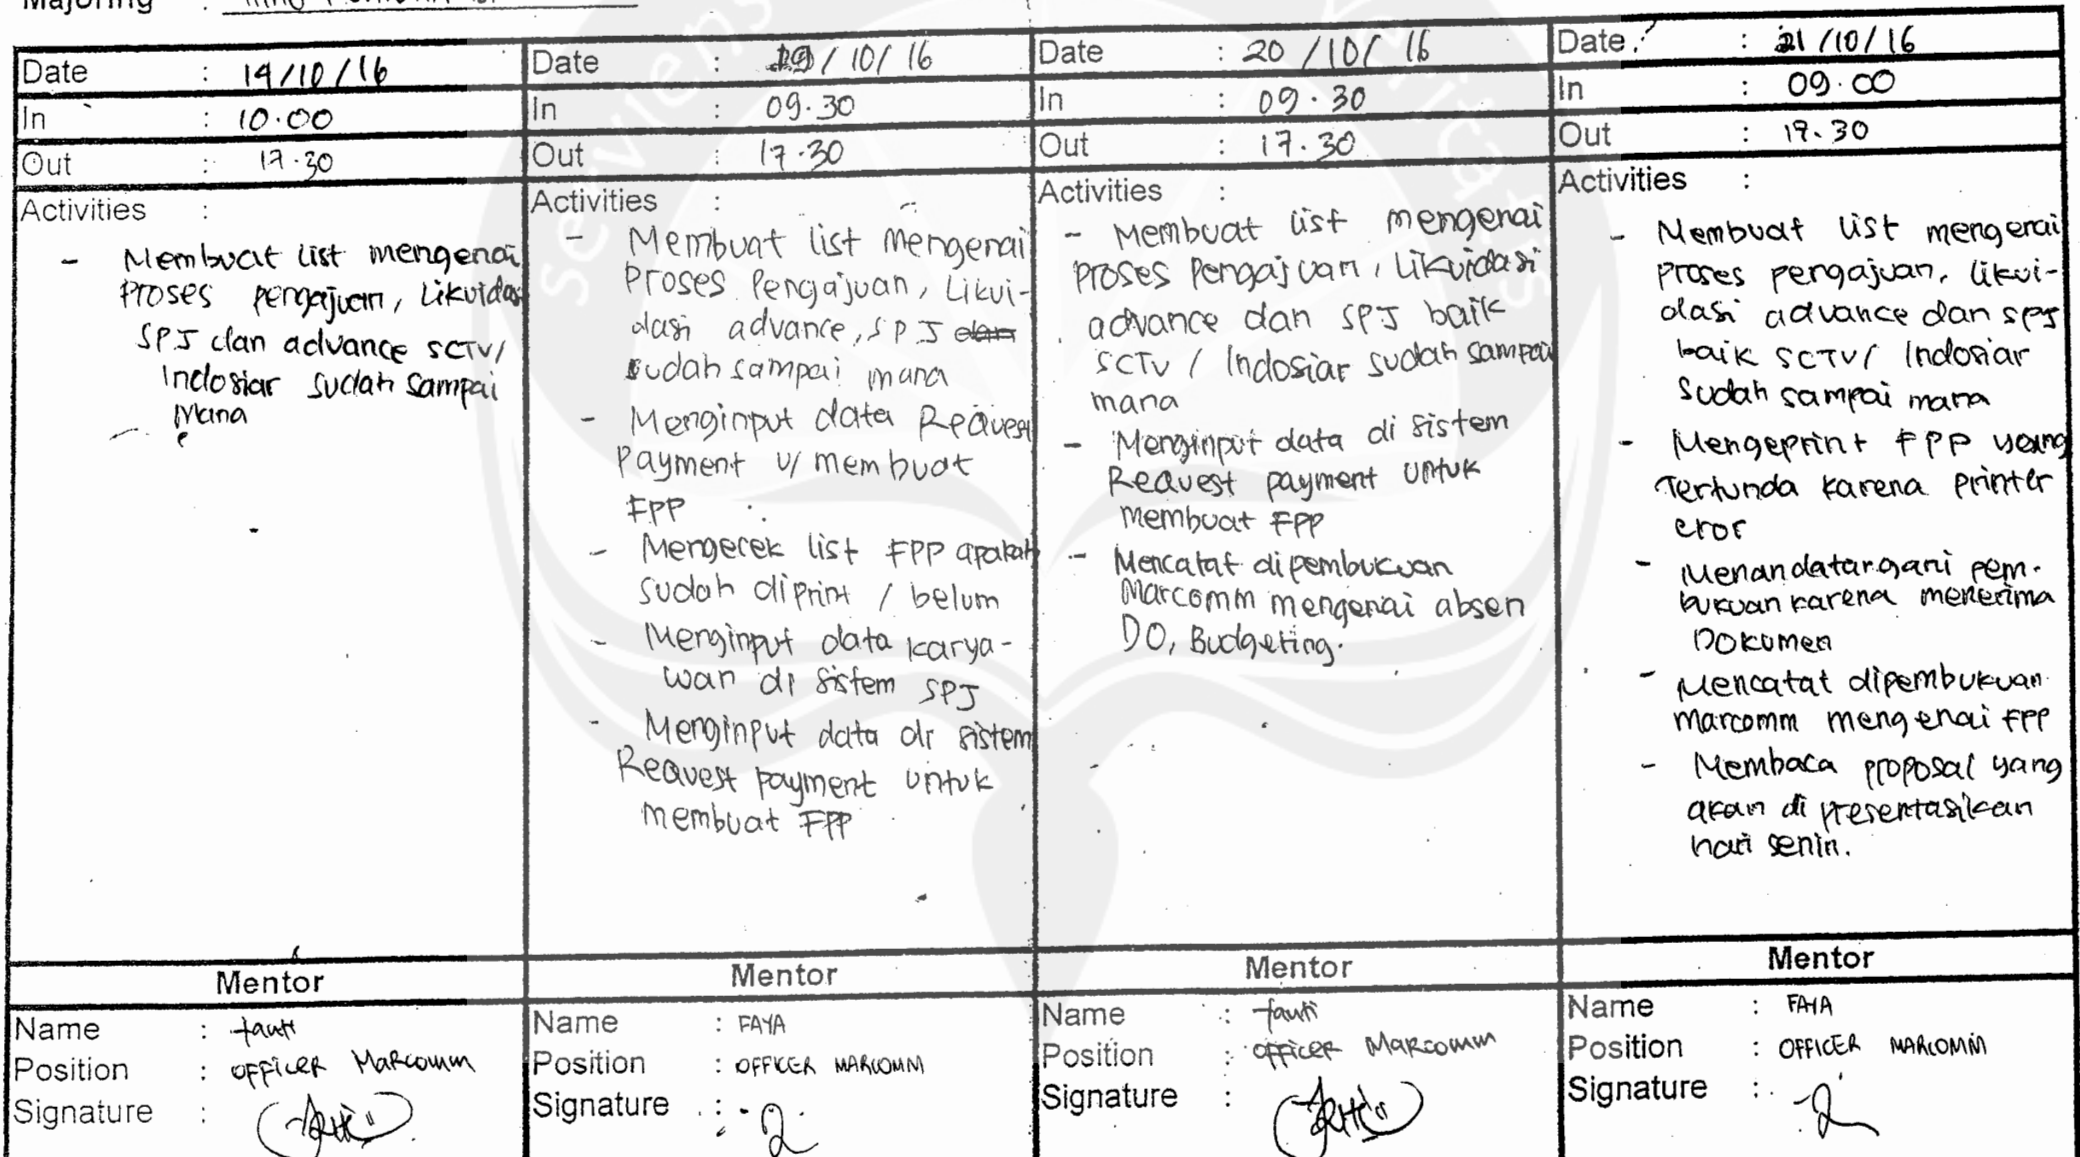 Majoring :
Date : 14/10/16
In : 10.00
Out : 17.30
Activities :
- Membuat list mengenai
proses pengajuan, Likuidasi
SPJ dan advance SCTV/
Indosiar sudah sampai
Mana
Mentor
Name : fanti
Position : OFFICER Marcomm
Signature :
Date : 19/10/16
In : 09.30
Out : 17.30
Activities :
- Membuat list Mengenai
Proses Pengajuan, Likui-
dasi advance, SPJ dan
sudah sampai mana
- Menginput data Request
Payment u/ membuat
FPP
- Mengecek list FPP apakah
sudah diprint / belum
- Menginput data karya-
wan di sistem SPJ
- Menginput data di sistem
Request payment untuk
membuat FPP
Mentor
Name : FAYA
Position : OFFICER MARCOMM
Signature :
Date : 20/10/16
In : 09.30
Out : 17.30
Activities :
- Membuat list mengenai
proses Pengajuan, Likuidasi
advance dan SPJ baik
SCTV / Indosiar sudah sampai
mana
- Menginput data di sistem
Request payment untuk
membuat FPP
- Mencatat dipembukuan
Marcomm mengenai absen
DO, Budgeting.
Mentor
Name : fanti
Position : OFFICER Marcomm
Signature :
Date : 21/10/16
In : 09.00
Out : 17.30
Activities :
- Membuat list mengenai
proses pengajuan, likui-
dasi advance dan SPJ
baik SCTV/ Indosiar
Sudah sampai mana
- Mengeprint FPP yang
Tertunda karena printer
eror
- Menandatangani pem-
bukuan karena menerima
Dokumen
- Mencatat dipembukuan
marcomm mengenai FPP
- Membaca proposal yang
akan di presentasikan
hari senin.
Mentor
Name : FAYA
Position : OFFICER MARCOMM
Signature :